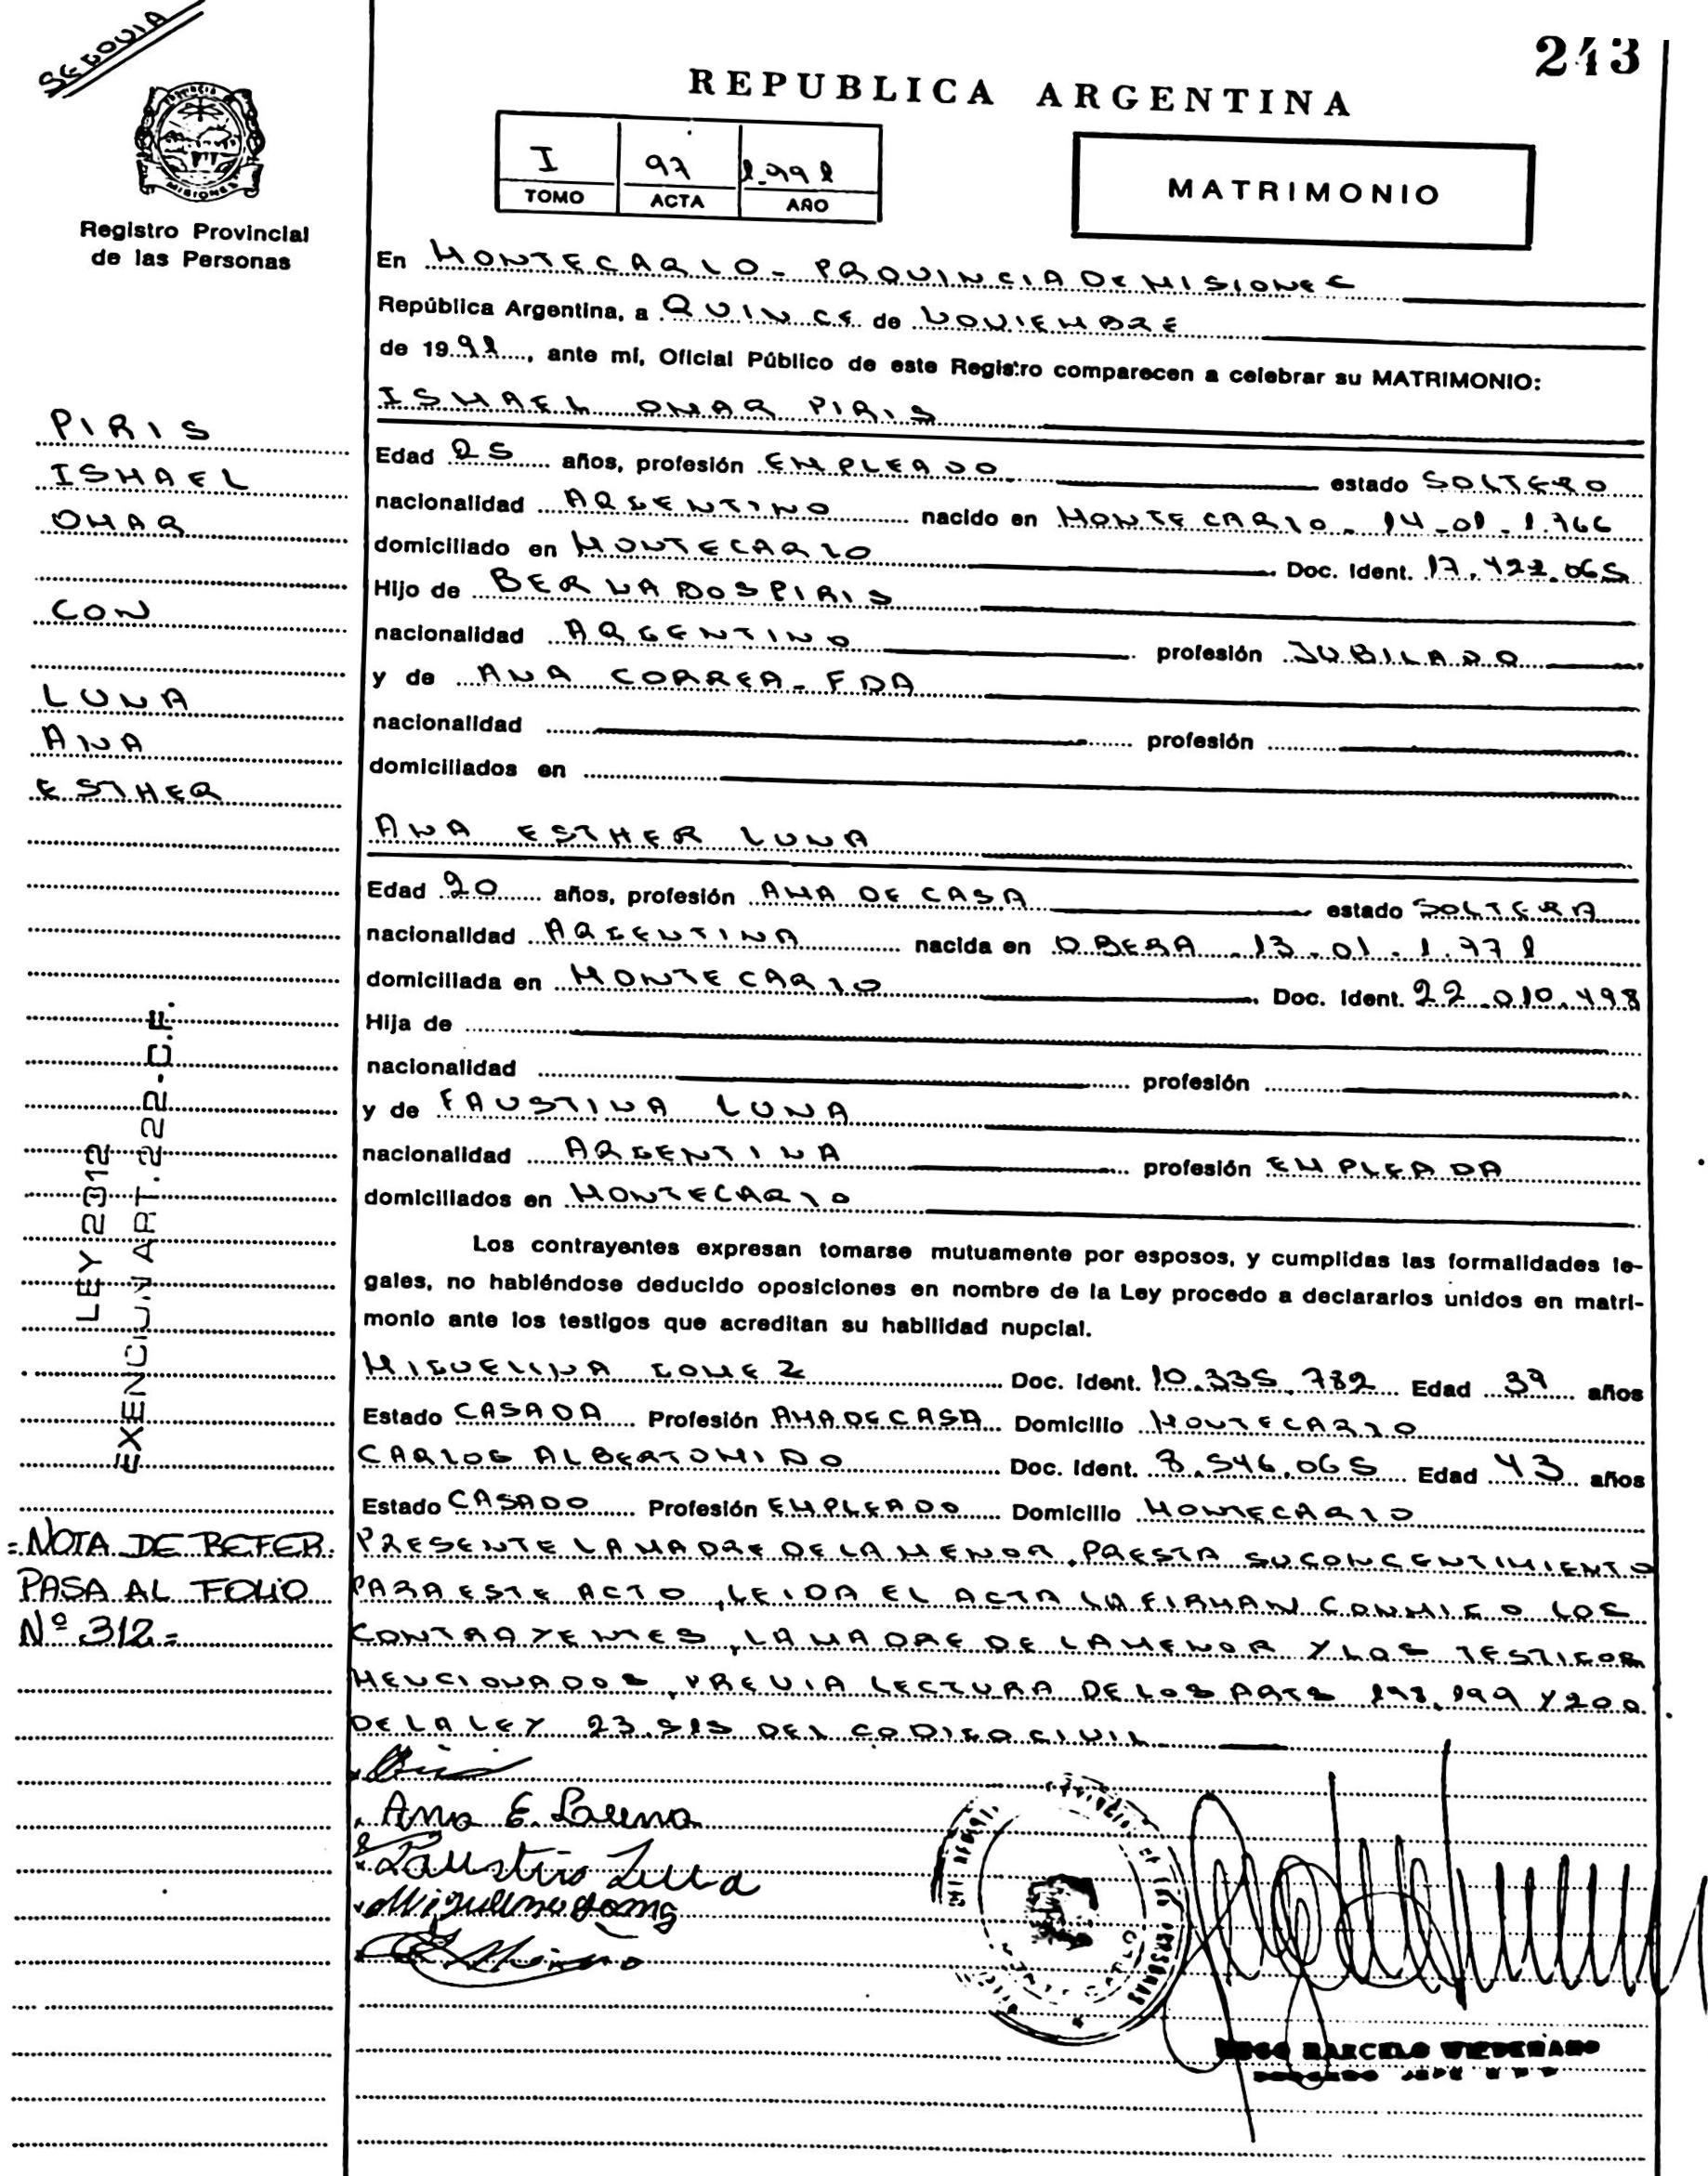 SEGOVIA
243
REPUBLICA ARGENTINA
I 97 1.991
TOMO ACTA AÑO
MATRIMONIO
MISIONES
Registro Provincial
de las Personas
En MONTECARLO - PROVINCIA DE MISIONES
República Argentina, a QUINCE de NOVIEMBRE
de 1991, ante mí, Oficial Público de este Registro comparecen a celebrar su MATRIMONIO:
ISMAEL OMAR PIRIS
Edad 25 años, profesión EMPLEADO estado SOLTERO
nacionalidad ARGENTINO nacido en MONTECARLO - 14-01-1.966
domiciliado en MONTECARLO Doc. Ident. 17.422.065
Hijo de BERNADOS PIRIS
nacionalidad ARGENTINO profesión JUBILADO
y de ANA CORREA - FDA
nacionalidad profesión
domiciliados en
ANA ESTHER LUNA
Edad 20 años, profesión AMA DE CASA estado SOLTERA
nacionalidad ARGENTINA nacida en OBERA - 13-01-1.971
domiciliada en MONTECARLO Doc. Ident. 22.010.498
Hija de
nacionalidad profesión
y de FAUSTINA LUNA
nacionalidad ARGENTINA profesión EMPLEADA
domiciliados en MONTECARLO
Los contrayentes expresan tomarse mutuamente por esposos, y cumplidas las formalidades le-
gales, no habiéndose deducido oposiciones en nombre de la Ley procedo a declararlos unidos en matri-
monio ante los testigos que acreditan su habilidad nupcial.
MIGUELINA GOMEZ Doc. Ident. 10.335.782 Edad 39 años
Estado CASADA Profesión AMA DE CASA Domicilio MONTECARLO
CARLOS ALBERTO MIDO Doc. Ident. 8.546.065 Edad 43 años
Estado CASADO Profesión EMPLEADO Domicilio MONTECARLO
PRESENTE LA MADRE DE LA MENOR, PRESTA SU CONCENTIMIENTO
PARA ESTE ACTO, LEIDA EL ACTA LA FIRMAN CONMIGO LOS
CONTRAYENTES, LA MADRE DE LA MENOR Y LOS TESTIGOS
MENCIONADOS, PREVIA LECTURA DE LOS ARTS 198, 199 Y 200
DE LA LEY 23.515 DEL CODIGO CIVIL
Ana E. Luna
Faustina Luna
Miguelina Gomez
PIRIS
ISMAEL
OMAR
CON
LUNA
ANA
ESTHER
LEY 2312
EXENCIUN ART. 222-C.F.
=NOTA DE REFER.
PASA AL FOLIO
Nº 312=